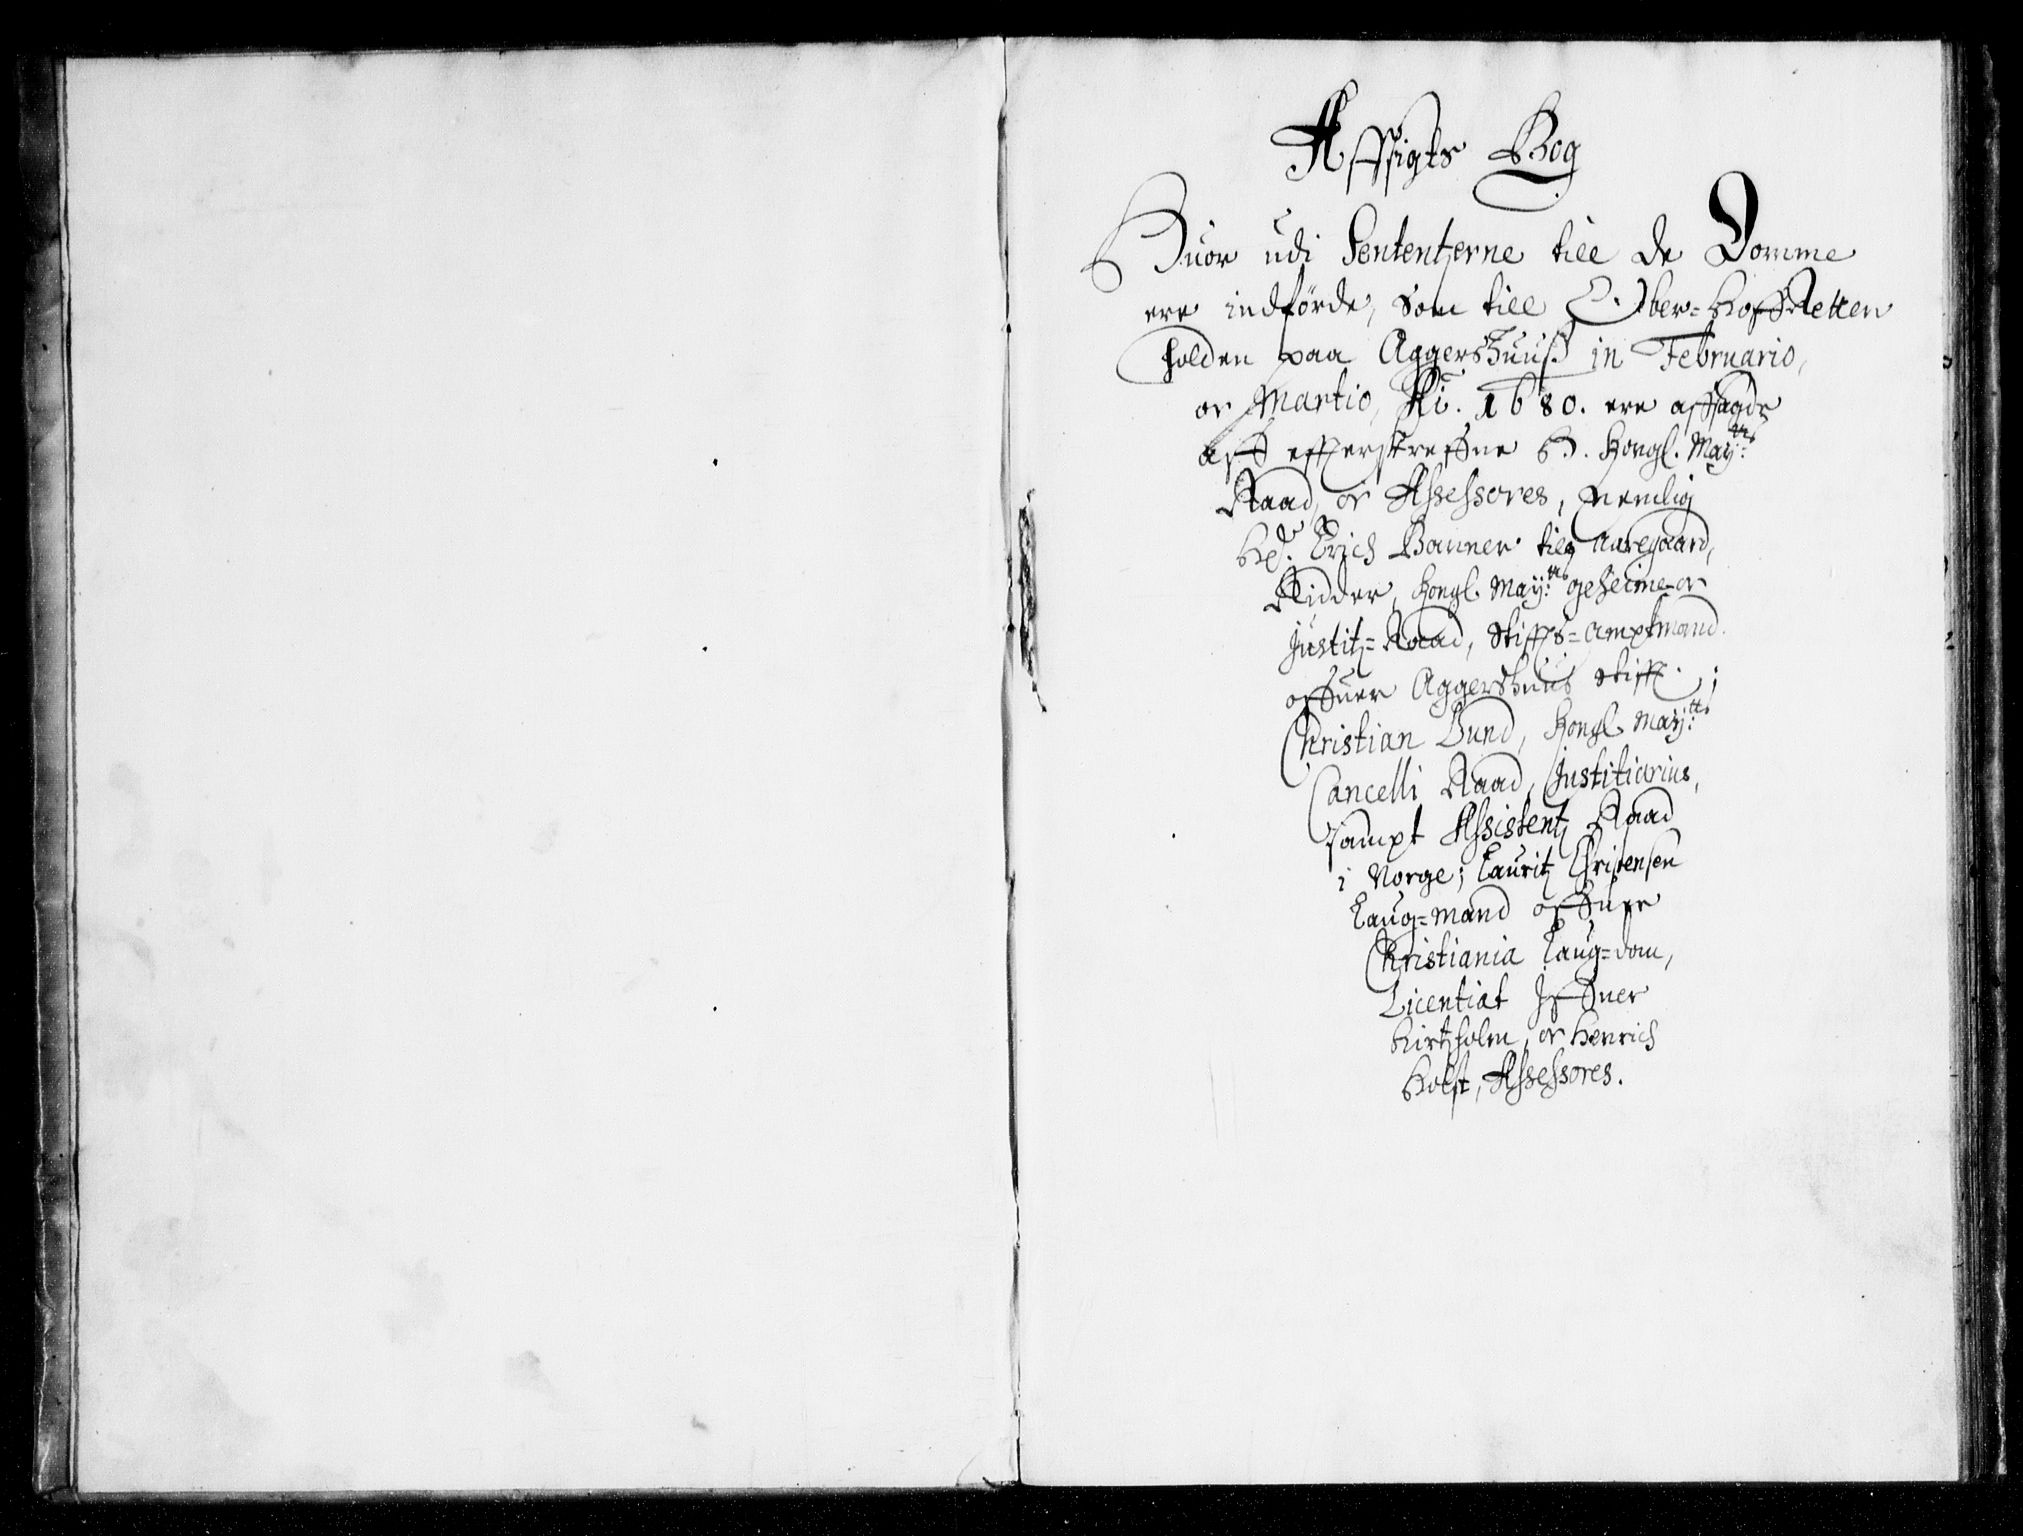 Affsigts Bog
Huor udi Sententzerne till de Domme
ere indförde, som till Ober=HoffRetten
holden paa Aggershuuss in Februario,
oc Martio, Ai. 1680. ere affsagde
aff effterskreffne H. Kongl. May:tts
Raad, oc Assessores, Nemlig
Hr. Erich Banner till Aaregaard,
Ridder, Kongl. May:tts geheime- oc
Justitz=Raad, Stiffts=amptmand
offuer Aggershuus Stifft;
Christian Lund, Kongl. May:tts
Cancelli Raad, Justitiarius,
sampt Assistentz Raad
i Norge; Lauritz Christensen
Laug=mand offuer
Christiania Laug=dom,
Licentiat Iffuer
Hirtzholm, oc Henrich
Holst, Assessores.